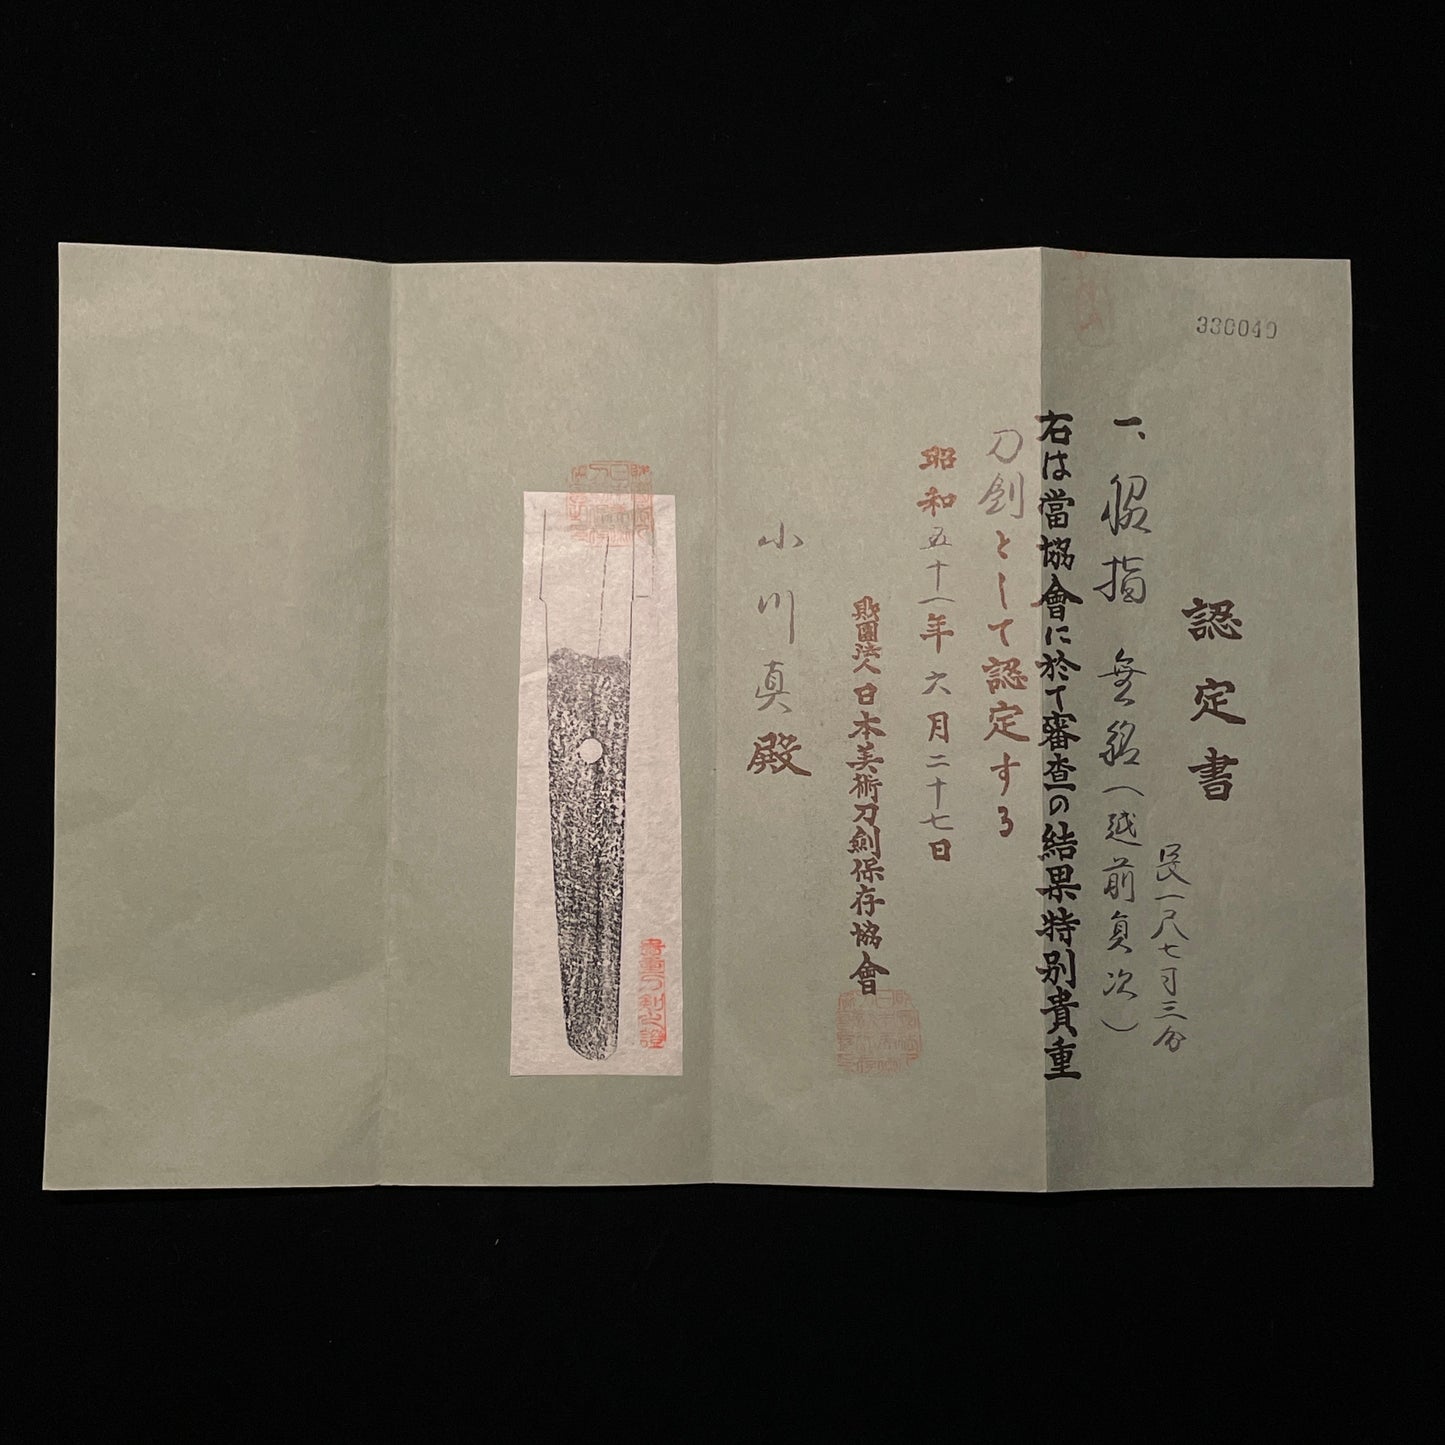 330040
認定書
一、脇指 無銘(越前貞次)
長一尺七寸三分
右は當協會に於て審査の結果特別貴重
刀剣として認定する
昭和五十一年六月二十七日
財團法人日本美術刀劍保存協會
小川真殿
貴重刀剣之證